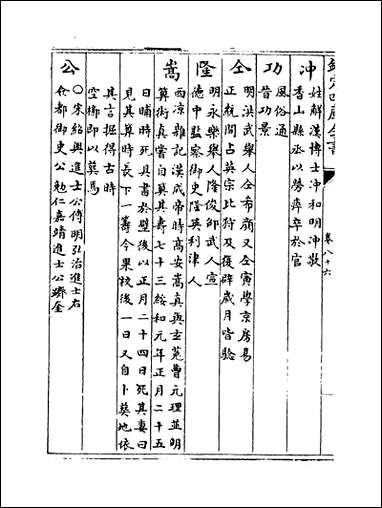 欽定四庫全書
卷八十六
冲
姓解漢博士冲和明冲敬
香山縣丞以勞瘁卒於官
功
風俗通
晉功景
仝
明洪武舉人仝布嶺又仝寅學京房易
正統間占英宗北狩及復辟歲月皆驗
隆
明永樂舉人隆俊邵武人宣
德中監察御史隆英利津人
嵩
西凉雜記漢成帝時高安嵩真與玄菟曹元理並明
算術真嘗自算其壽七十三綏和元年正月二十五
日晡時死具書於壁後以正月二十四日死其妻曰
見其算時長下一籌今果校後一日又自卜葬地依
其言掘得古時
空槨即以葬焉
公
○宋紹興進士公傳明弘治進士右
僉都御史公勉仁嘉靖進士公躋奎